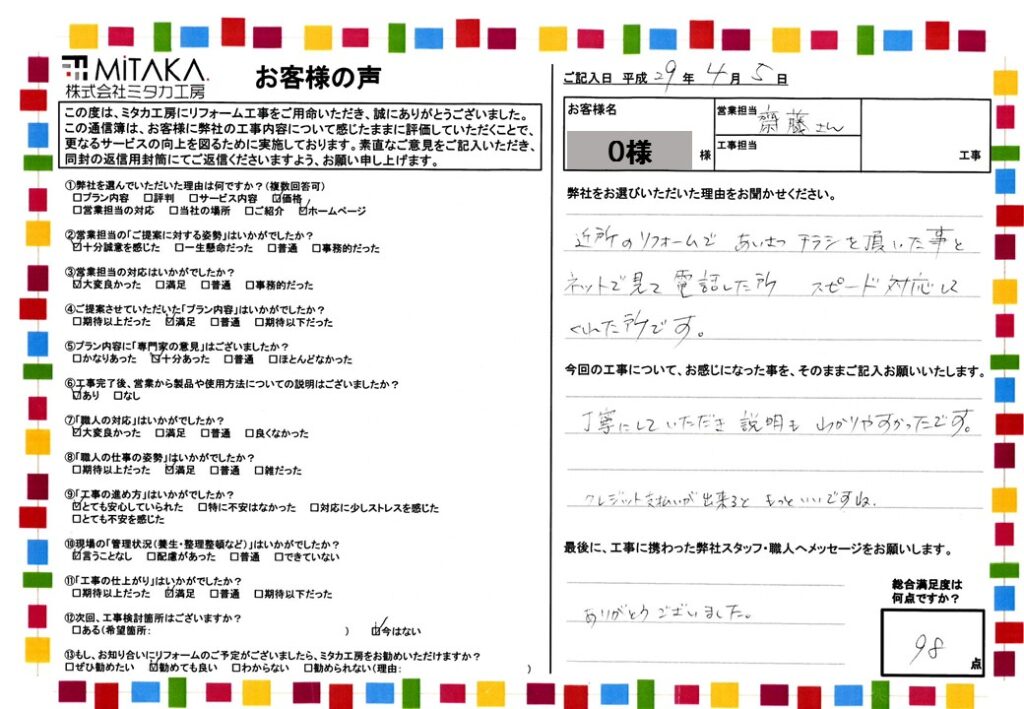 MiTAKA.
株式会社ミタカ工房
お客様の声
この度は、ミタカ工房にリフォーム工事をご用命いただき、誠にありがとうございました。
この通信簿は、お客様に弊社の工事内容について感じたままに評価していただくことで、
更なるサービスの向上を図るために実施しております。素直なご意見をご記入いただき、
同封の返信用封筒にてご返信くださいますよう、お願い申し上げます。
①弊社を選んでいただいた理由は何ですか?(複数回答可)
□プラン内容 □評判 □サービス内容 ☑価格
□営業担当の対応 □当社の場所 □ご紹介 ☑ホームページ
②営業担当の「ご提案に対する姿勢」はいかがでしたか?
☑十分誠意を感じた □一生懸命だった □普通 □事務的だった
③営業担当の対応はいかがでしたか?
☑大変良かった □満足 □普通 □事務的だった
④ご提案させていただいた「プラン内容」はいかがでしたか?
□期待以上だった ☑満足 □普通 □期待以下だった
⑤プラン内容に「専門家の意見」はございましたか?
□かなりあった ☑十分あった □普通 □ほとんどなかった
⑥工事完了後、営業から製品や使用方法についての説明はございましたか?
☑あり □なし
⑦「職人の対応」はいかがでしたか?
☑大変良かった □満足 □普通 □良くなかった
⑧「職人の仕事の姿勢」はいかがでしたか?
□期待以上だった ☑満足 □普通 □雑だった
⑨「工事の進め方」はいかがでしたか?
☑とても安心していられた □特に不安はなかった □対応に少しストレスを感じた
□とても不安を感じた
⑩現場の「管理状況(養生・整理整頓など)」はいかがでしたか?
☑言うことなし □配慮があった □普通 □できていない
⑪「工事の仕上がり」はいかがでしたか?
□期待以上だった ☑満足 □普通 □期待以下だった
⑫次回、工事検討箇所はございますか?
□ある(希望箇所: ) ☑今はない
⑬もし、お知り合いにリフォームのご予定がございましたら、ミタカ工房をお勧めいただけますか?
□ぜひ勧めたい ☑勧めても良い □わからない □勧められない(理由: )
ご記入日 平成29年4月5日
お客様名
O様 様
営業担当 齋藤さん
工事担当
工事
弊社をお選びいただいた理由をお聞かせください。
近所のリフォームで あいさつ チラシを頂いた事と
ネットで見て電話した所 スピード対応して
くれた所です。
今回の工事について、お感じになった事を、そのままご記入お願いいたします。
丁寧にしていただき 説明も わかりやすかったです。
クレジット支払いが出来ると もっといいですね.
最後に、工事に携わった弊社スタッフ・職人へメッセージをお願いします。
ありがとうございました。
総合満足度は
何点ですか?
98点